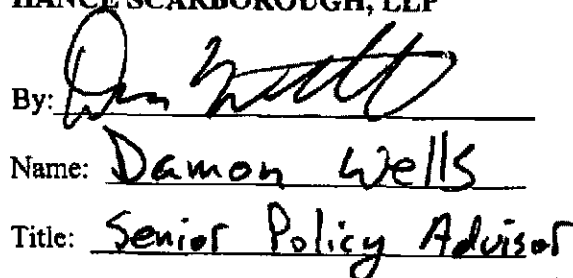 HANCE SCARBOROUGH, LLP
By:
Name: Damon Wells
Title: Senior Policy Advisor